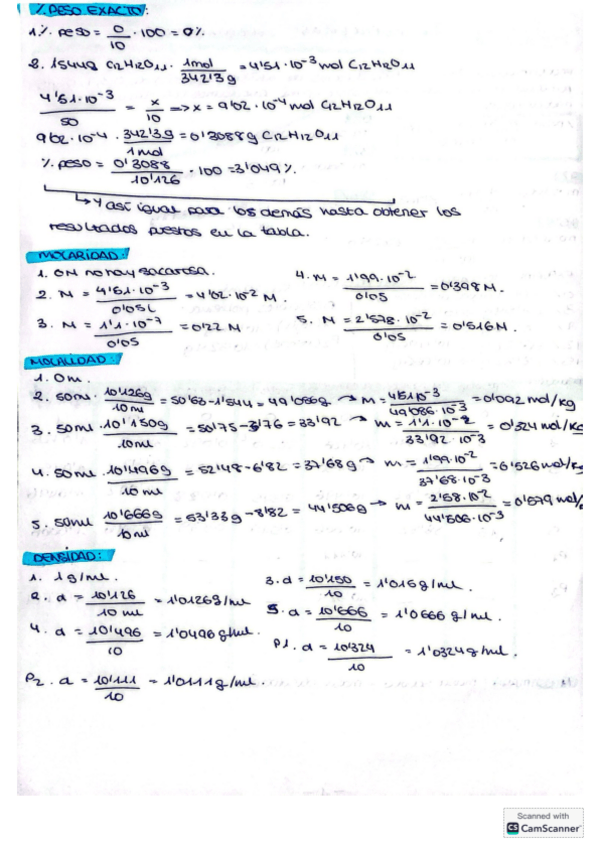 % PESO EXACTO:
1. % peso = 0/10 · 100 = 0%
2. 1'544g C12H12O11 · 1mol/342'3g = 4'51·10⁻³ mol C12H12O11
4'51·10⁻³/50 = x/10 => x = 9'02·10⁻⁴ mol C12H12O11
9'02·10⁻⁴ · 342'3g/1mol = 0'3088g C12H12O11
% peso = 0'3088/10'126 · 100 = 3'049%
↳ Y así igual para los demás hasta obtener los
resultados puestos en la tabla.
MOLARIDAD:
1. 0M no hay sacarosa.
2. M = 4'51·10⁻³/0'05L = 9'02·10⁻² M.
3. M = 1'1·10⁻²/0'05 = 0'22 M
4. M = 1'99·10⁻²/0'05 = 0'398 M.
5. M = 2'578·10⁻²/0'05 = 0'516 M.
MOLALIDAD:
1. 0m.
2. 50ml · 10'126g/10ml = 50'63-1'544 = 49'086g → m = 4'51·10⁻³/49'086·10⁻³ = 0'092 mol/kg
3. 50ml · 10'150g/10ml = 50'75-3'76 = 33'92 → m = 1'1·10⁻²/33'92·10⁻³ = 0'324 mol/kg
4. 50ml · 10'496g/10ml = 52'48-6'82 = 37'68g → m = 1'99·10⁻²/37'68·10⁻³ = 0'526 mol/k
5. 50ml 10'666g/10ml = 53'33g-8'82 = 44'506g → m = 2'58·10⁻²/44'506·10⁻³ = 0'579 mol/
DENSIDAD:
1. 1g/ml.
2. d = 10'126/10 ml = 1'0126g/ml
3. d = 10'150/10 = 1'015g/ml.
4. d = 10'496/10 = 1'0496g/ml.
5. d = 10'666/10 = 1'0666 g/ml.
P1. d = 10'324/10 = 1'0324g/ml.
P2. d = 10'111/10 = 1'0111g/ml.
Scanned with
CS CamScanner